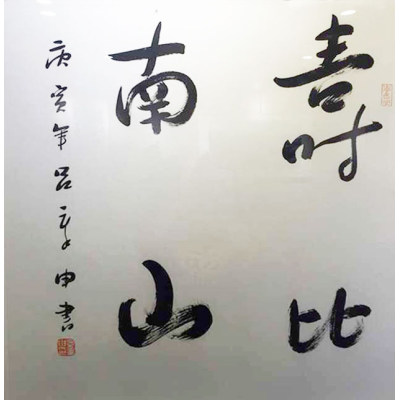 壽比
南山
庚寅年吕章申書